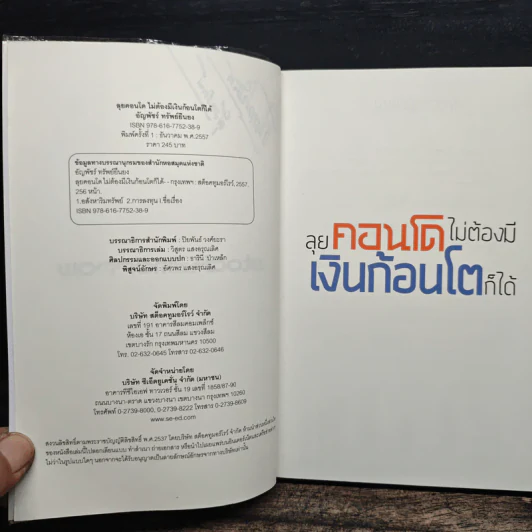 ลุยคอนโด ไม่ต้องมีเงินก้อนโตก็ได้
ธัญพัชร์ ทรัพย์ยืนยง
ISBN 978-616-7752-38-9
พิมพ์ครั้งที่ 1 : ธันวาคม พ.ศ.2557
ราคา 245 บาท
ข้อมูลทางบรรณานุกรมของสำนักหอสมุดแห่งชาติ
ธัญพัชร์ ทรัพย์ยืนยง
ลุยคอนโด ไม่ต้องมีเงินก้อนโตก็ได้-- กรุงเทพฯ : สต็อคทูมอร์โรว์, 2557.
256 หน้า.
1.อสังหาริมทรัพย์ 2.การลงทุน I ชื่อเรื่อง
ISBN 978-616-7752-38-9
บรรณาธิการสำนักพิมพ์ : ปิยพันธ์ วงศ์ยะรา
บรรณาธิการเล่ม : วิสูตร แสงอรุณเลิศ
ศิลปกรรมและออกแบบปก : ธารินี
พิสูจน์อักษร : อัศวพร แสงอรุณเลิศ
จัดพิมพ์โดย
บริษัท สต็อคทูมอร์โรว์ จำกัด
เลขที่ 191 อาคารสีลมคอมเพล็กซ์
ห้องเอ ชั้น 17 ถนนสีลม แขวงสีลม
เขตบางรัก กรุงเทพมหานคร 10500
โทร. 02-632-0645 โทรสาร 02-632-0646
จัดจำหน่ายโดย
บริษัท ซีเอ็ดยูเคชั่น จำกัด (มหาชน)
อาคารทีซีไอเอฟ ทาวเวอร์ ชั้น 19 เลขที่ 1858/87-90
ถนนบางนา-ตราด แขวงบางนา เขตบางนา กรุงเทพฯ 10260
โทรศัพท์ 0-2739-8000, 0-2739-8222 โทรสาร 0-2739-8609
www.se-ed.com
สงวนลิขสิทธิ์ตามพระราชบัญญัติลิขสิทธิ์ พ.ศ.2537 โดยบริษัท สต็อคทูมอร์โรว์ จำกัด
ของหนังสือเล่มนี้ไปลอกเลียนแบบ ทำสำเนา ถ่ายเอกสาร หรือนำไปเผยแพร่บนอินเตอร์เน็ต
ไม่ว่าในรูปแบบใดๆ นอกจากจะได้รับอนุญาตเป็นลายลักษณ์อักษรจากทางบริษัทเท่านั้น
ลุย คอนโด ไม่ต้องมี
เงินก้อนโต ก็ได้